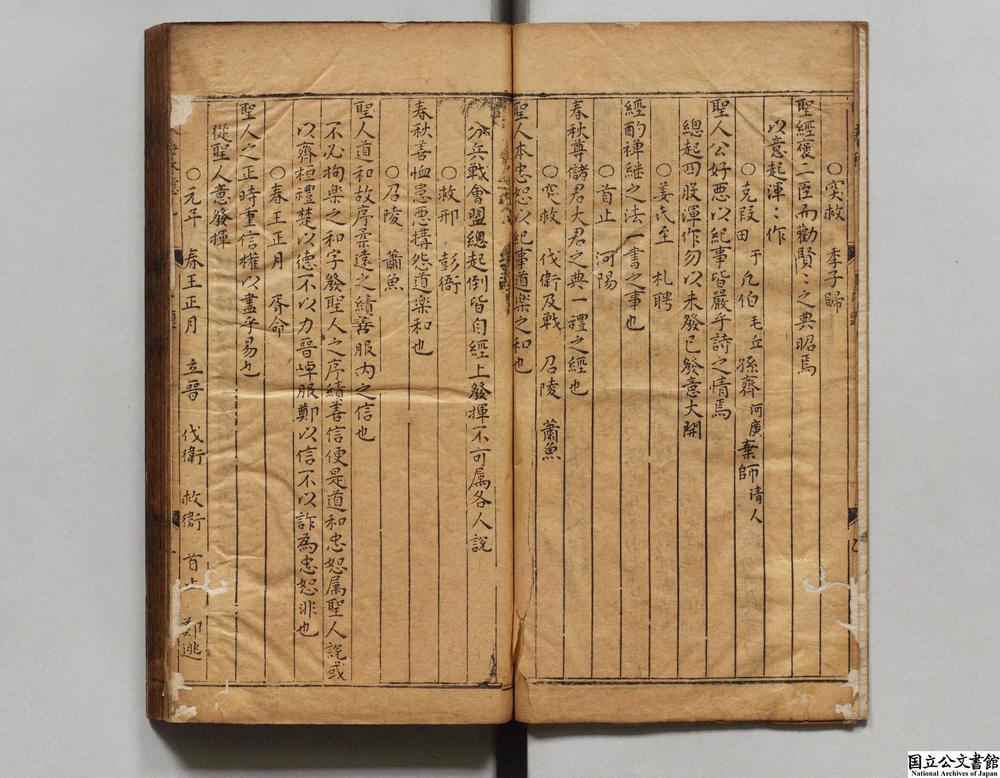 ○突救　季子歸
聖經褒二臣而勸賢〻之典昭焉
以意起渾〻作
○克段　于凡伯　毛丘　孫齊　河廣　棄師　清人
聖人公好惡以紀事皆嚴乎詩之情焉
總起四股渾作勿以未發已發意大開
○姜氏至　札聘
經酌禪繼之法一書之事也
○首止　河陽
春秋尊儲君大君之典一禮之經也
○突救　伐衛及戰　召陵　蕭魚
聖人本忠恕以紀事道樂之和也
分兵戰會盟總起倒皆自經上發揮不可属各人說
○救邢　彭衙
春秋善恤患惡搆怨道樂和也
○召陵　蕭魚
聖人道和故序柔遠之績善服內之信也
不必拘樂之和字發聖人之序績善信便是道和忠恕属聖人說或
以齊桓禮楚以德不以力晉悼服鄭以信不以詐為忠恕非也
○春王正月　胥命
聖人之正時重信權以盡乎易也
從聖人意發揮
○元年　春王正月　立晉　伐衛　救衛　首止　鄭逃
国立公文書館
National Archives of Japan